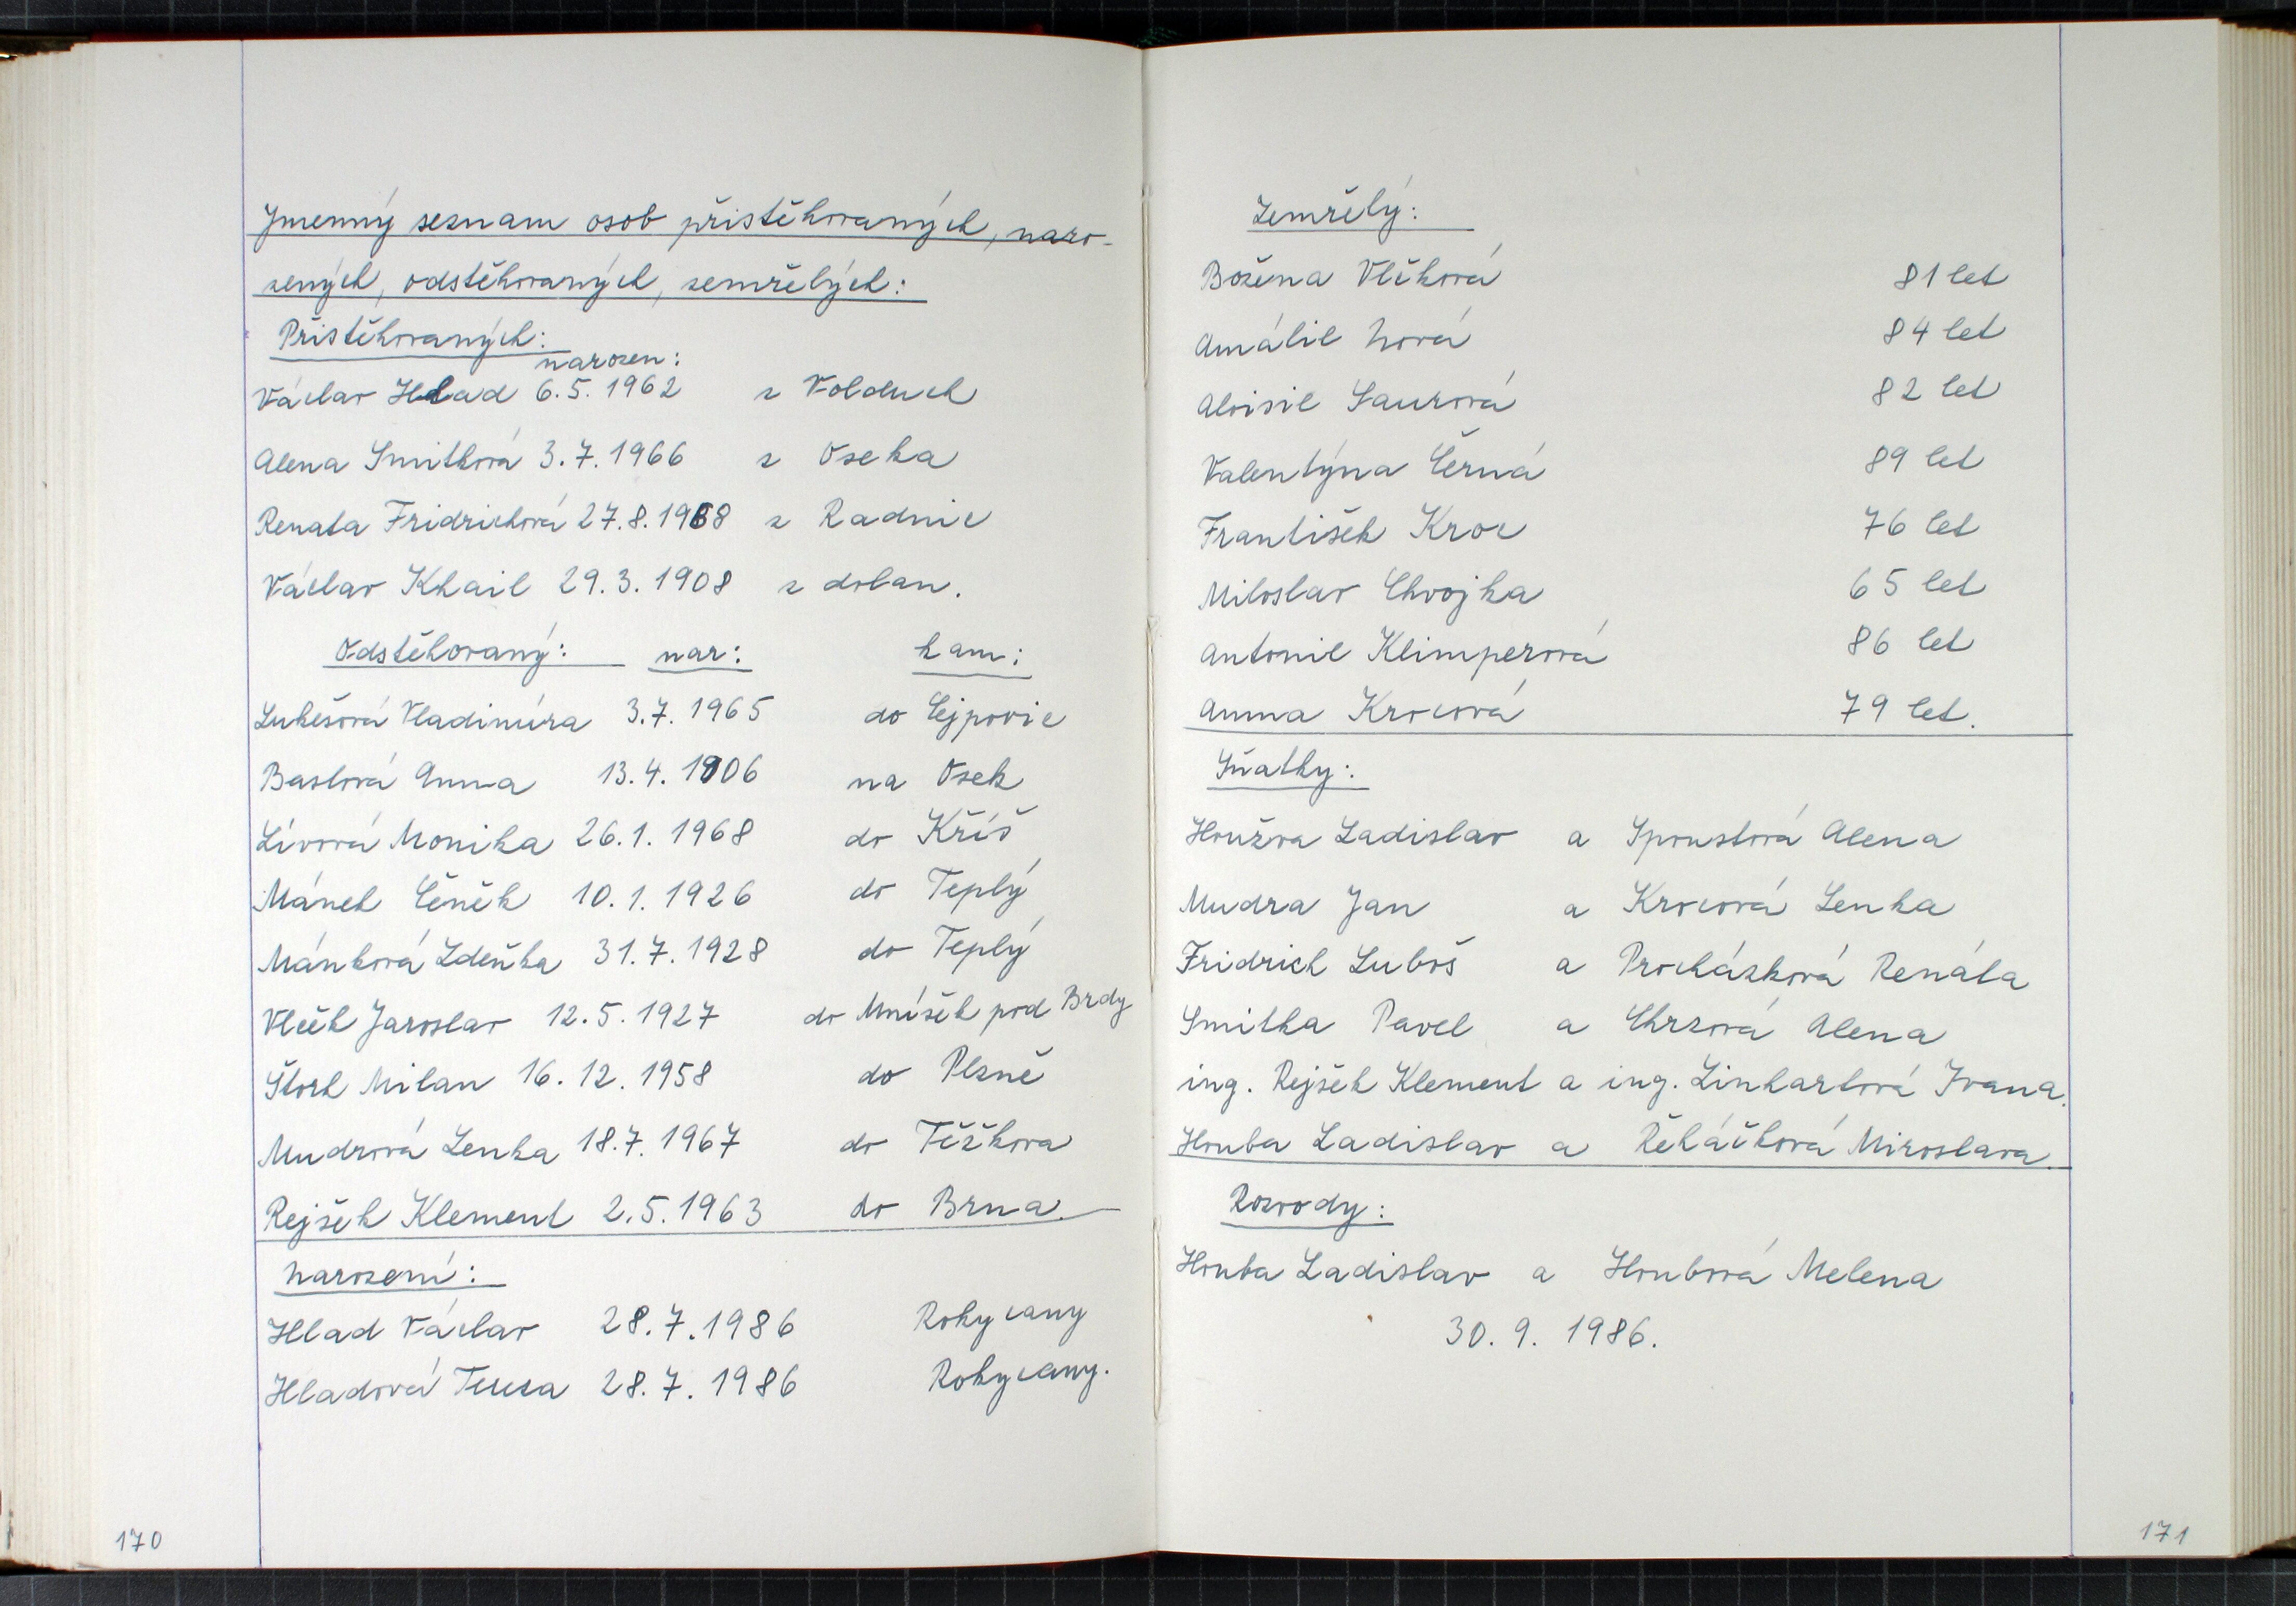 Jmenný seznam osob přistěhovaných, naro-
zených, odstěhovaných, zemřelých:
Přistěhovaných:
narozen:
Václav Hlad 6.5.1962 z Volduch
Alena Smitková 3.7.1966 z Oseka
Renata Fridrichová 27.8.1968 z Radnic
Václav Khail 29.3.1908 z dolan.
Odstěhovaný: nar: kam:
Lukešová Vladimíra 3.7.1965 do Ejpovic
Baslová Anna 13.4.1906 na Osek
Lívová Monika 26.1.1968 do Kříš
Mánek Čeněk 10.1.1926 do Teplý
Mánková Zdeňka 31.7.1928 do Teplý
Vlček Jaroslav 12.5.1927 do Mníšek pod Brdy
Štork Milan 16.12.1958 do Plzně
Mudrová Lenka 18.7.1967 do Těškova
Rejšek Klement 2.5.1963 do Brna.
Narození:
Hlad Václav 28.7.1986 Rokycany
Hladová Tereza 28.7.1986 Rokycany.
170
Zemřelý:
Božena Vlčková 81 let
Amálie Nová 84 let
Aloisie Saurová 82 let
Valentýna Černá 89 let
František Kroc 76 let
Miloslav Chvojka 65 let
Antonie Klimperová 86 let
Anna Krocová 79 let.
Sňatky:
Houžva Ladislav a Spoustová Alena
Mudra Jan a Krocová Lenka
Fridrich Luboš a Procházková Renáta
Smitka Pavel a Chrzová Alena
ing. Rejšek Klement a ing. Linhartová Ivana.
Houba Ladislav a Řeháčková Miroslava.
Rozvody:
Houba Ladislav a Houbová Melena
30. 9. 1986.
171